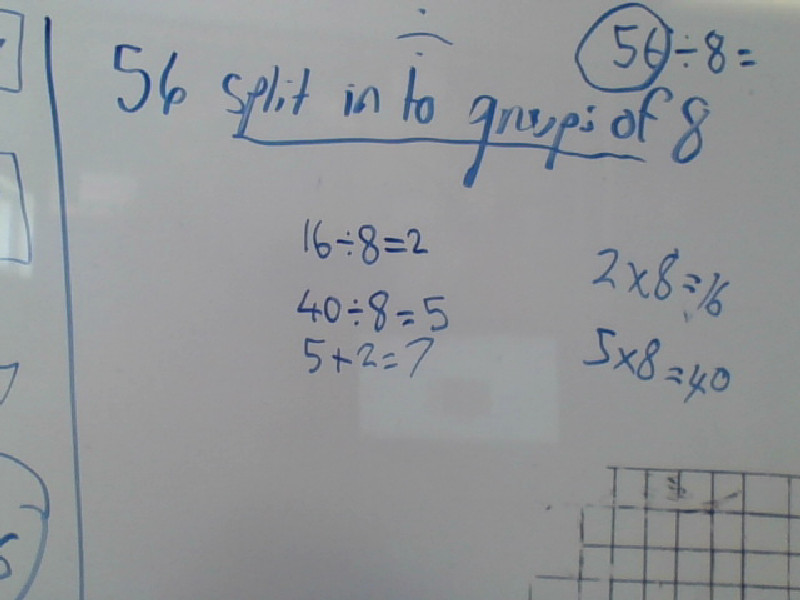 56 ÷ 8 =
÷
56 split in to groups of 8
16÷8=2
40÷8=5
5+2=7
2×8=16
5×8=40